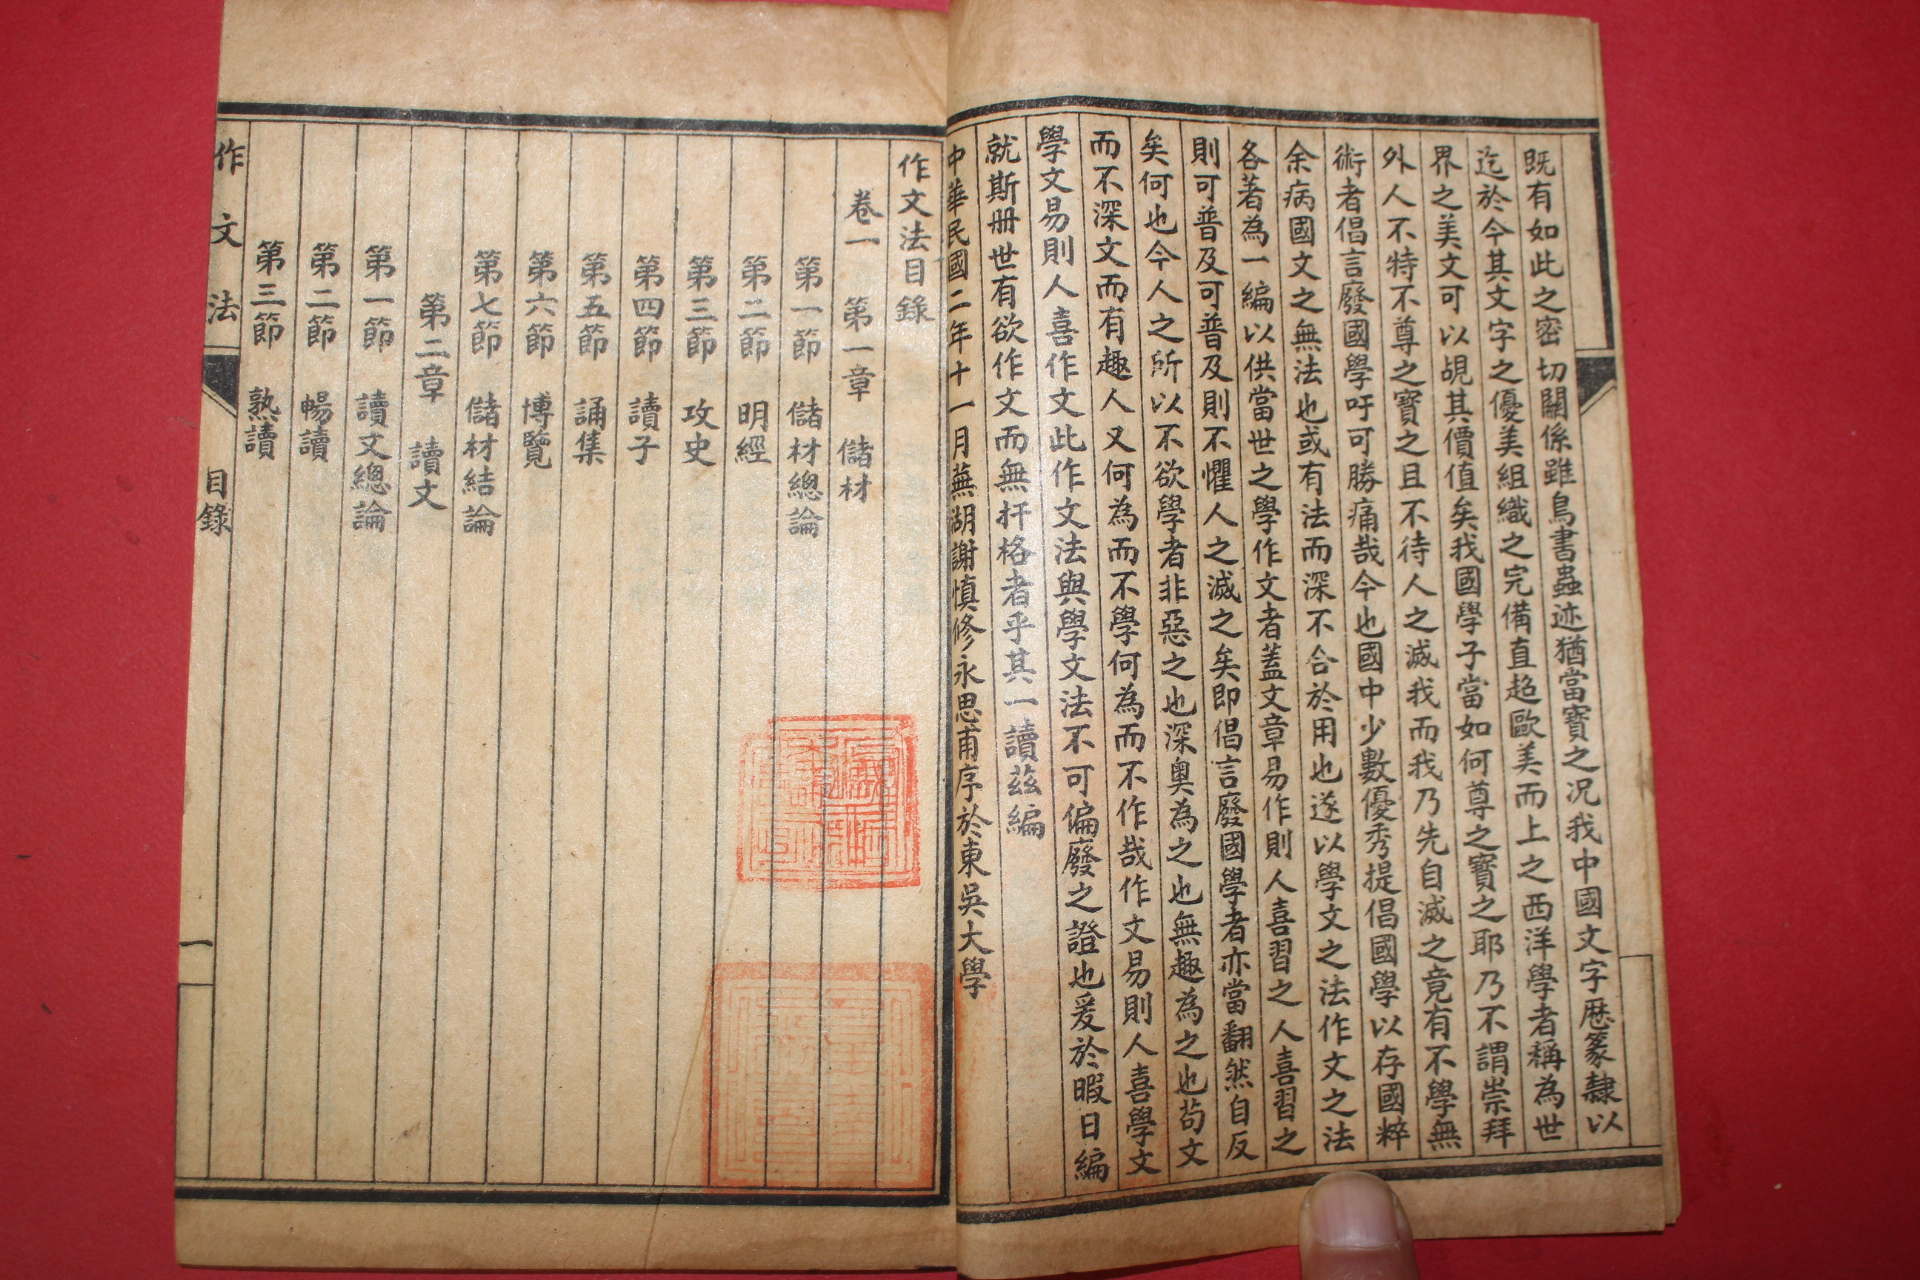 既有如此之密切關係雖鳥書蟲迹猶當寶之況我中國文字歷篆隸以
迄於今其文字之優美組織之完備直超歐美而上之西洋學者稱為世
界之美文可以覘其價值矣我國學子當如何尊之寶之耶乃不謂崇拜
外人不特不尊之寶之且不待人之滅我而我乃先自滅之竟有不學無
術者倡言廢國學吁可勝痛哉今也國中少數優秀提倡國學以存國粹
余病國文之無法也或有法而深不合於用也遂以學文之法作文之法
各著為一編以供當世之學作文者蓋文章易作則人喜習之人喜習之
則可普及可普及則不懼人之滅之矣即倡言廢國學者亦當翻然自反
矣何也今人之所以不欲學者非惡之也深奧為之也無趣為之也苟文
而不深文而有趣人又何為而不學何為而不作哉作文易則人喜學文
學文易則人喜作文此作文法與學文法不可偏廢之證也爰於暇日編
就斯册世有欲作文而無扞格者乎其一讀茲編
中華民國二年十一月蕪湖謝慎修永思甫序於東吳大學
作文法目錄
卷一 第一章 儲材
第一節 儲材總論
第二節 明經
第三節 攻史
第四節 讀子
第五節 誦集
第六節 博覽
第七節 儲材結論
第二章 讀文
第一節 讀文總論
第二節 暢讀
第三節 熟讀
作文法 目錄 一